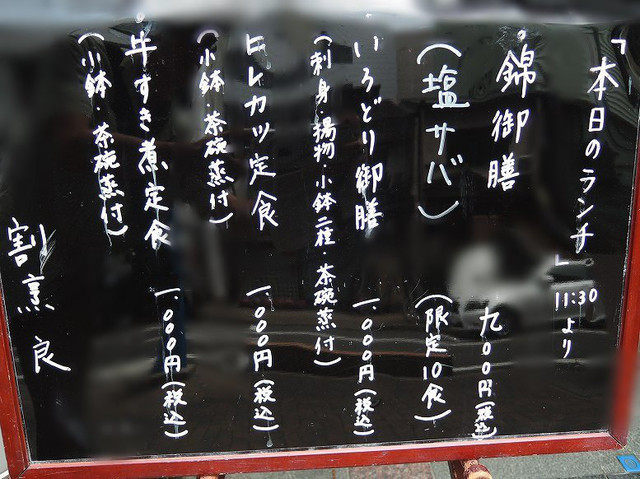 「本日のランチ」 11:30より
・錦御膳 九〇〇円(税込)
(塩サバ) (限定10食)
いろどり御膳 一、〇〇〇円(税込)
(刺身・揚物・小鉢二種・茶碗蒸付)
ヒレカツ定食 一、〇〇〇円(税込)
(小鉢・茶碗蒸付)
牛すき煮定食 一、〇〇〇円(税込)
(小鉢・茶碗蒸付)
割烹 良